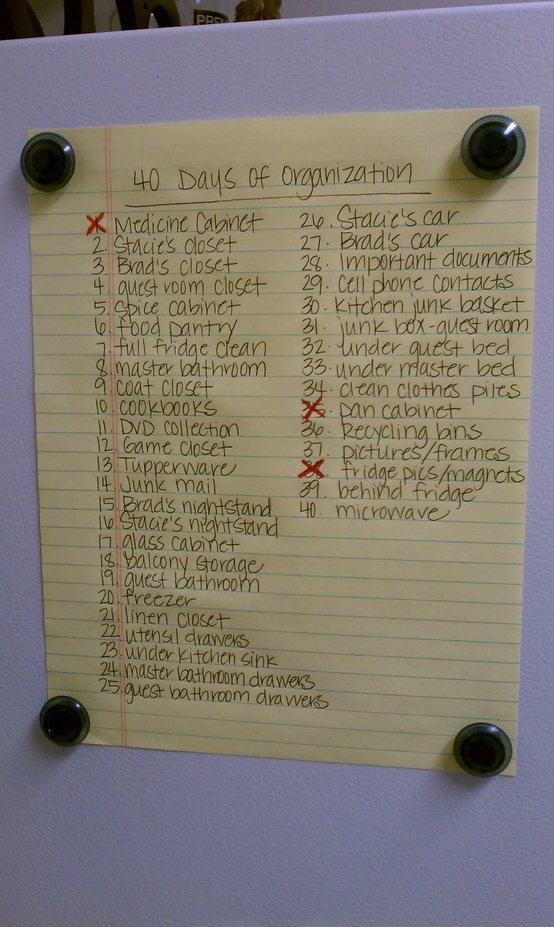 40 Days of Organization
X Medicine Cabinet
2. Stacie's closet
3. Brad's closet
4. guest room closet
5. Spice cabinet
6. food pantry
7. full fridge clean
8. master bathroom
9. Coat closet
10. COOKBOOKS
11. DVD collection
12. Game closet
13. Tupperware
14. Junk mail
15. Brad's nightstand
16. Stacie's nightstand
17. glass cabinet
18. balcony storage
19. guest bathroom
20. freezer
21. linen closet
22. utensil drawers
23. under kitchen sink
24. master bathroom drawers
25. guest bathroom drawers
26. Stacie's car
27. Brad's car
28. Important documents
29. Cell phone contacts
30. kitchen junk basket
31. junk box-guest room
32. under guest bed
33. under master bed
34. clean clothes piles
35. pan cabinet
36. Recycling bins
37. pictures/frames
38. fridge pics/magnets
39. behind fridge
40. microwave